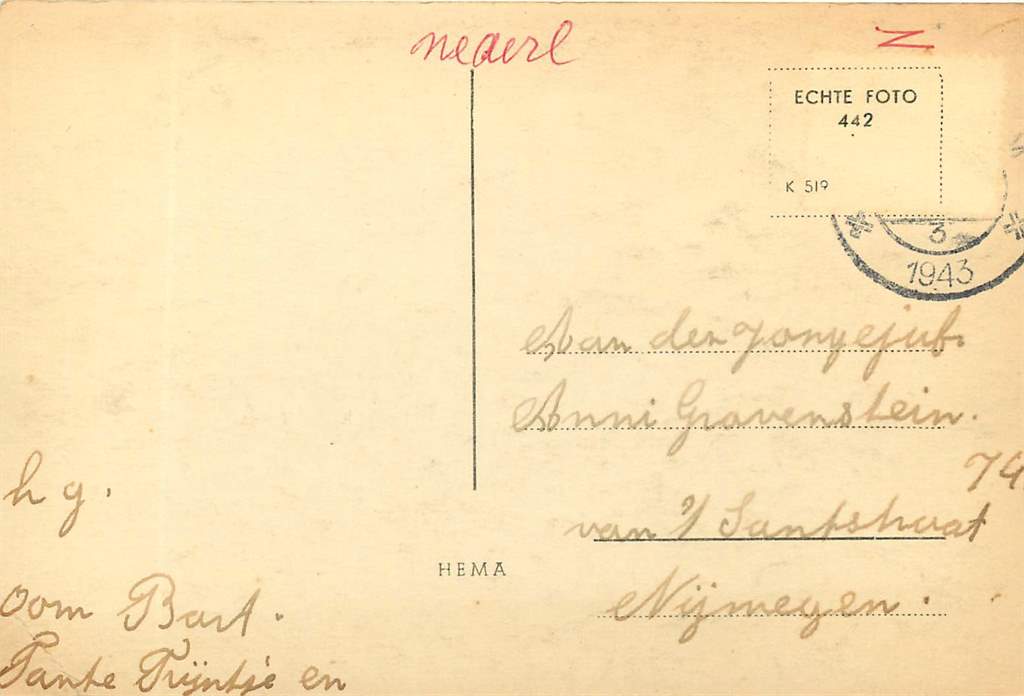 nederl
N
ECHTE FOTO
442
K 519
3
1943
Aan den Jongejuf.
Anni Gravenstein.
74
van 't Santstraat
Nijmegen.
h g.
HEMA
Oom Bart.
Tante Trijntje en